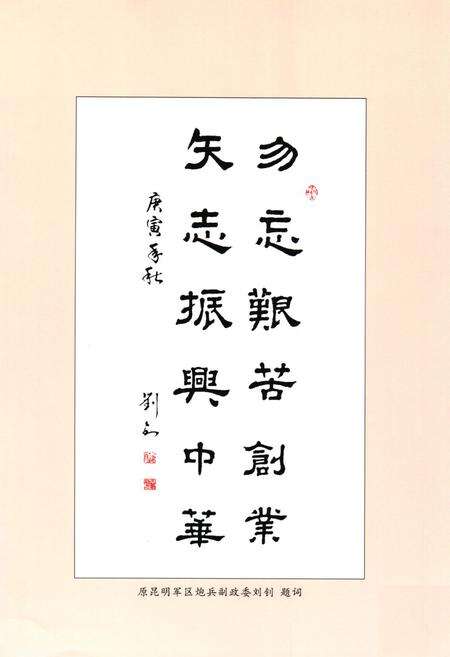 勿忘艱苦創業
矢志振興中華
庚寅年秋
劉
原昆明军区炮兵副政委刘钊 题词